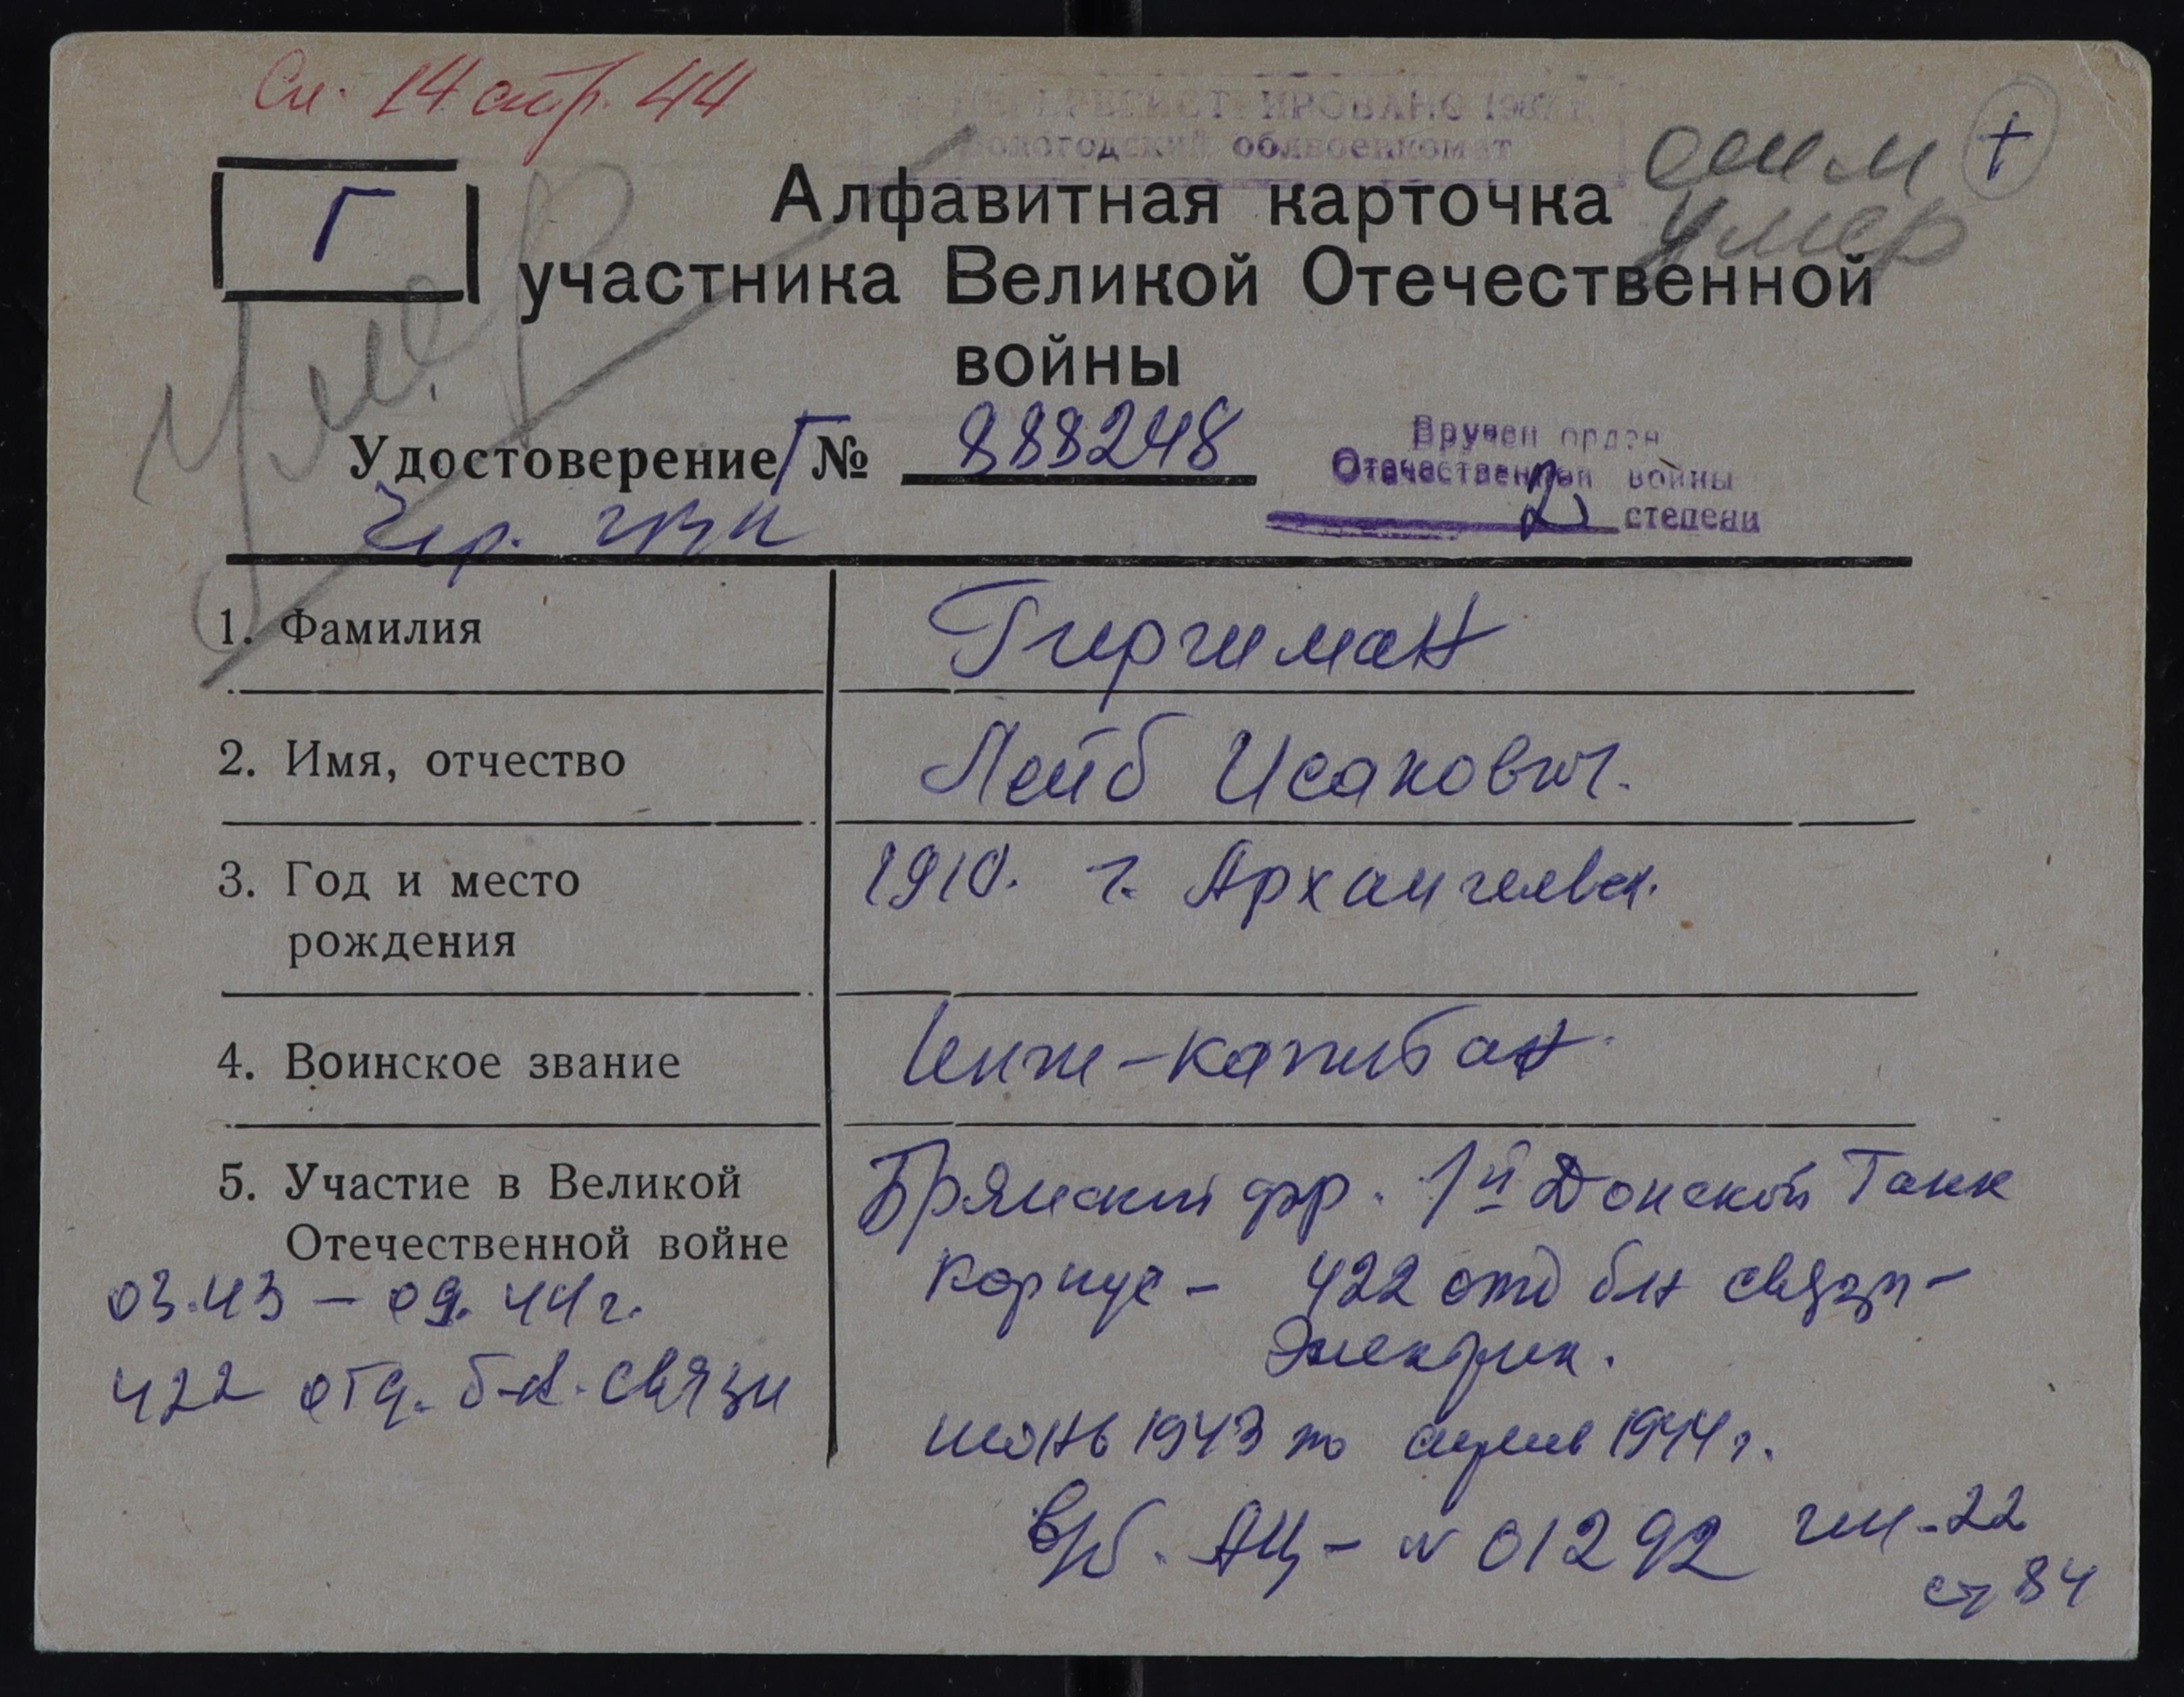 Сп. 14 стр. 44
ПЕРЕРЕГИСТРИРОВАНО 1987 г.
Вологодский облвоенкомат
+
умер
Г
Алфавитная карточка
участника Великой Отечественной
войны
умер
Удостоверение Г № 888248
Вручен орден
Отечественной войны
2 степени
1. Фамилия
Гиргиман
2. Имя, отчество
Лейб Исакович.
3. Год и место
рождения
1910. г. Архангельск.
4. Воинское звание
Инж-капитан
5. Участие в Великой
Отечественной войне
03.43 – 09.44 г.
422 отд. б-н. связи
Брянский фр. 1й Донской Танк
корпус – 422 отд бн связи –
Электрик.
июнь 1943 по апрель 1944 г.
в/б. АЩ – № 01292
ст 84